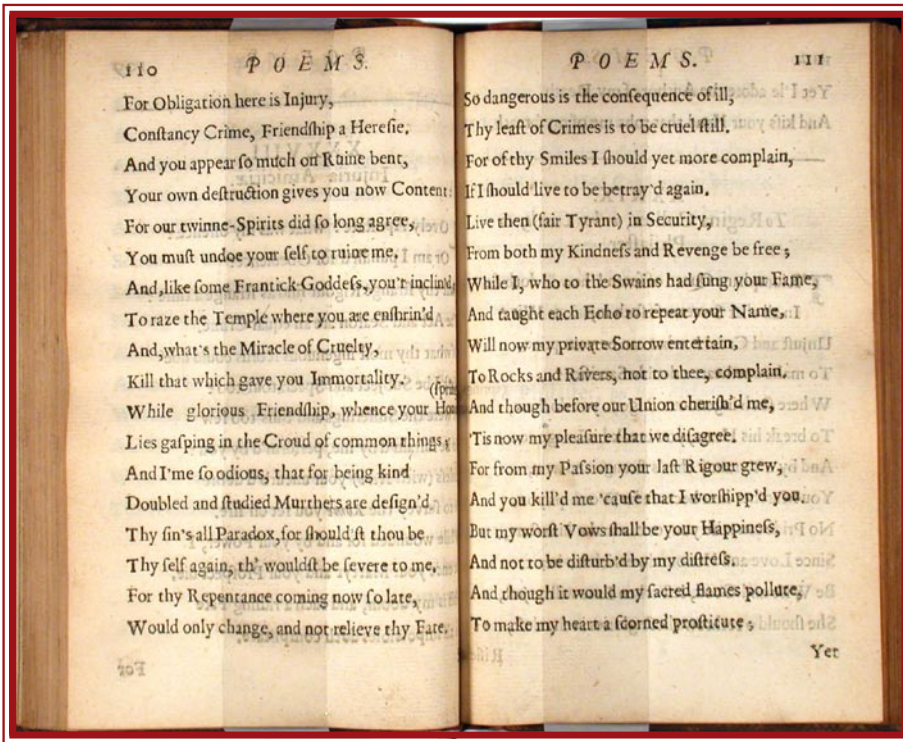 110 POEMS.
For Obligation here is Injury,
Conſtancy Crime, Friendſhip a Hereſie.
And you appear ſo much on Ruine bent,
Your own deſtruction gives you now Content:
For our twinne-Spirits did ſo long agree,
You muſt undoe your ſelf to ruine me.
And, like ſome Frantick Goddeſs, you'r inclin'd,
To raze the Temple where you are enſhrin'd
And, what's the Miracle of Cruelty,
Kill that which gave you Immortality.
While glorious Friendſhip, whence your
Lies gaſping in the Croud of common things;
And I'me ſo odious, that for being kind
Doubled and ſtudied Murthers are deſign'd.
Thy ſin's all Paradox, for ſhould'ſt thou be
Thy ſelf again, th' wouldſt be ſevere to me,
For thy Repentance coming now ſo late,
Would only change, and not relieve thy Fate.
POEMS. 111
So dangerous is the conſequence of ill,
Thy leaſt of Crimes is to be cruel ſtill.
For of thy Smiles I ſhould yet more complain,
If I ſhould live to be betray'd again.
Live then (fair Tyrant) in Security,
From both my Kindneſs and Revenge be free;
While I, who to the Swains had ſung your Fame,
And taught each Echo to repeat your Name,
Will now my private Sorrow entertain,
To Rocks and Rivers, not to thee, complain.
And though before our Union cheriſh'd me,
'Tis now my pleaſure that we diſagree.
For from my Paſsion your laſt Rigour grew,
And you kill'd me 'cauſe that I worſhipp'd you.
But my worſt Vows ſhall be your Happineſs,
And not to be diſturb'd by my diſtreſs.
And though it would my ſacred flames pollute,
To make my heart a ſcorned proſtitute;
Yet